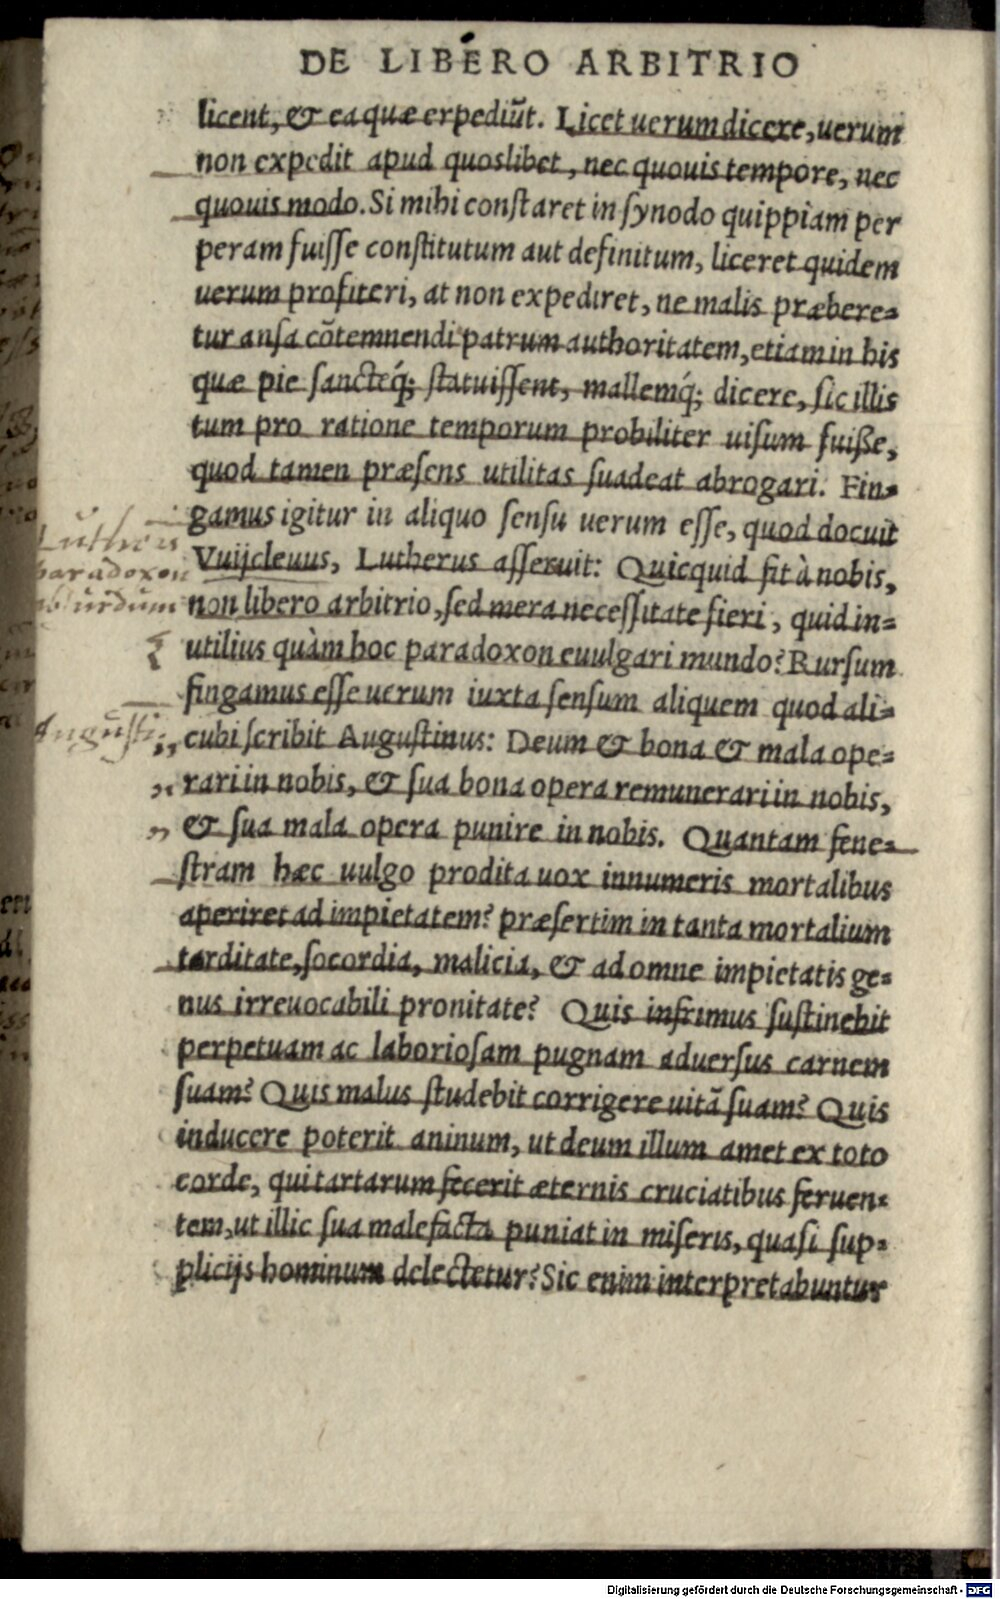 DE LIBERO ARBITRIO
licent, & ea quæ expediūt. Licet uerum dicere, uerum
non expedit apud quoslibet, nec quouis tempore, nec
quouis modo. Si mihi constaret in synodo quippiam per
peram fuisse constitutum aut definitum, liceret quidem
uerum profiteri, at non expediret, ne malis præbere=
tur ansa cōtemnendi patrum authoritatem, etiam in his
quæ pie sancteq́; statuissent, mallemq́; dicere, sic illis
tum pro ratione temporum probiliter uisum fuiße,
quod tamen præsens utilitas suadeat abrogari. Fin=
gamus igitur in aliquo sensu uerum esse, quod docuit
Vuijcleuus, Lutherus asseruit: Quicquid fit à nobis,
non libero arbitrio, sed mera necessitate fieri, quid in=
utilius quàm hoc paradoxon euulgari mundo? Rursum
fingamus esse uerum iuxta sensum aliquem quod ali=
cubi scribit Augustinus: Deum & bona & mala ope=
rari in nobis, & sua bona opera remunerari in nobis,
& sua mala opera punire in nobis. Quantam fene=
stram hæc uulgo prodita uox innumeris mortalibus
aperiret ad impietatem? præsertim in tanta mortalium
tarditate, socordia, malicia, & ad omne impietatis ge=
nus irreuocabili pronitate? Quis infirmus sustinebit
perpetuam ac laboriosam pugnam aduersus carnem
suam? Quis malus studebit corrigere uitā suam? Quis
inducere poterit aninum, ut deum illum amet ex toto
corde, qui tartarum fecerit æternis cruciatibus feruen=
tem, ut illic sua malefacta puniat in miseris, quasi sup=
plicijs hominum delectetur? Sic enim interpretabuntur
Lutheri
paradoxon
absurdum
Augusti
Digitalisierung gefördert durch die Deutsche Forschungsgemeinschaft - DFG